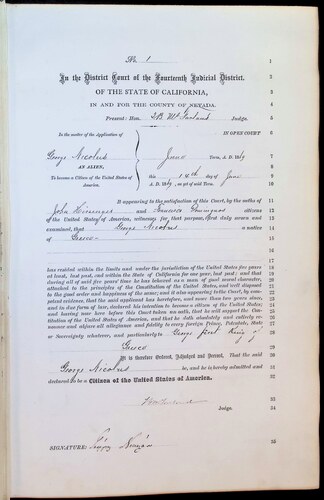 No. 1 1
2
In the District Court of the Fourteenth Judicial District. 2
OF THE STATE OF CALIFORNIA, 3
IN AND FOR THE COUNTY OF NEVADA. 4
Present: Hon. T.B. McFarland Judge. 5
In the matter of the Application of IN OPEN COURT 6
George Nicolus June Term, A. D. 1869 7
AN ALIEN, 8
To become a Citizen of the United States of this 14th day of June 9
America. A. D. 1869, as yet of said Term. 10
It appearing to the satisfaction of this Court, by the oaths of 11
John and citizens 12
of the United States of America, witnesses for that purpose, first duly sworn and 13
examined, that George Nicolus a native 14
of Greece 15
16
has resided within the limits and under the jurisdiction of the United States five years 17
at least, last past, and within the State of California for one year, last past; and that 18
during all of said five years' time he has behaved as a man of good moral character, 19
attached to the principles of the Constitution of the United States, and well disposed 20
to the good order and happiness of the same; and it also appearing to the Court, by competent 21
evidence, that the said applicant has heretofore, and more than two years since, 22
and in due form of law, declared his intention to become a citizen of the United States; 23
and having now here before this Court taken an oath, that he will support the Constitution 24
of the United States of America, and that he doth absolutely and entirely renounce 25
and abjure all allegiance and fidelity to every foreign Prince, Potentate, State 26
or Sovereignty whatever, and particularly to George first King of 27
28
Greece 29
It is therefore Ordered, Adjudged and Decreed, That the said 30
George Nicolus be, and he is hereby admitted and 31
declared to be a Citizen of the United States of America. 32
33
Judge. 34
SIGNATURE: 35